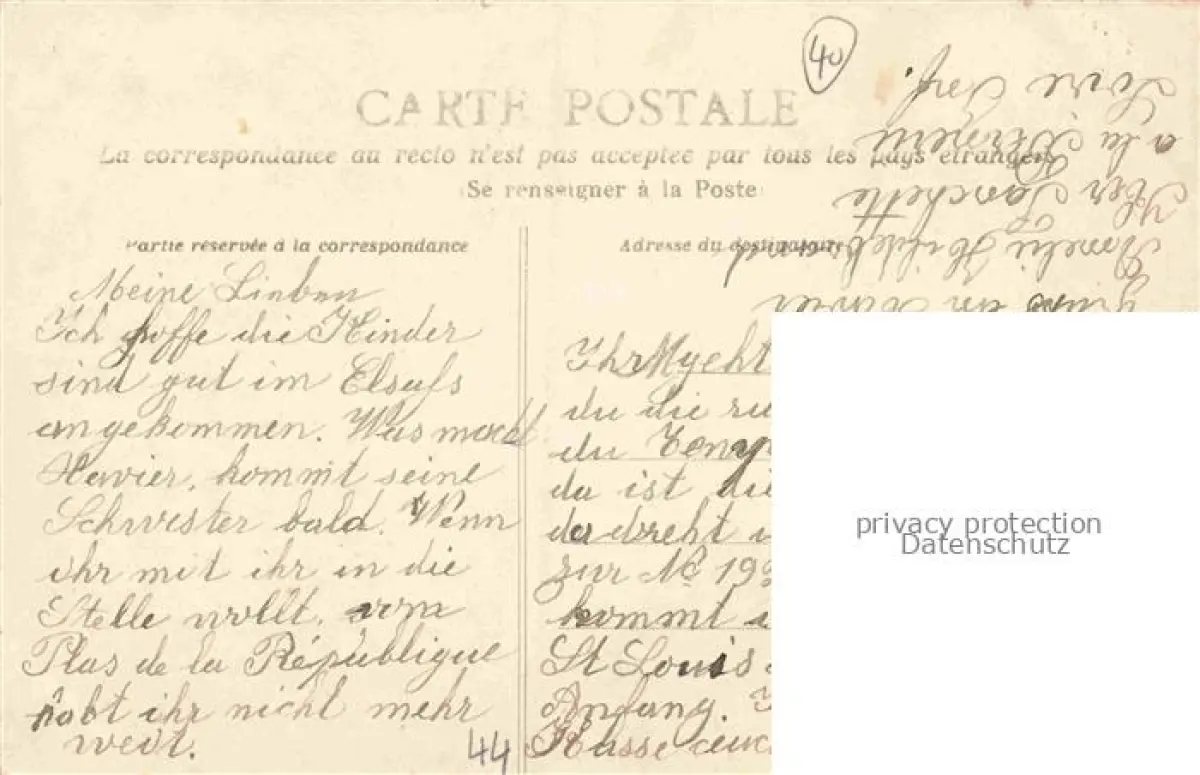 40
CARTE POSTALE
La correspondance au recto n'est pas acceptée par tous les pays étrangers
(Se renseigner à la Poste)
Partie réservée à la correspondance
Adresse du destinataire
Meine Lieben
Ich hoffe die Kinder
sind gut im Elsass
angekommen. Was macht
Xavier, kommt seine
Schwester bald. Wenn
ihr mit ihr in die
Stelle wollt. vom
Plas de la République
habt ihr nicht mehr
weit.
44
Ihr
du die
du
da ist die
da dreht
zur No 19
kommt
St Louis
Anfang.
Kasse
Amelie Hildebrand
a la
Loire Inf.
privacy protection
Datenschutz